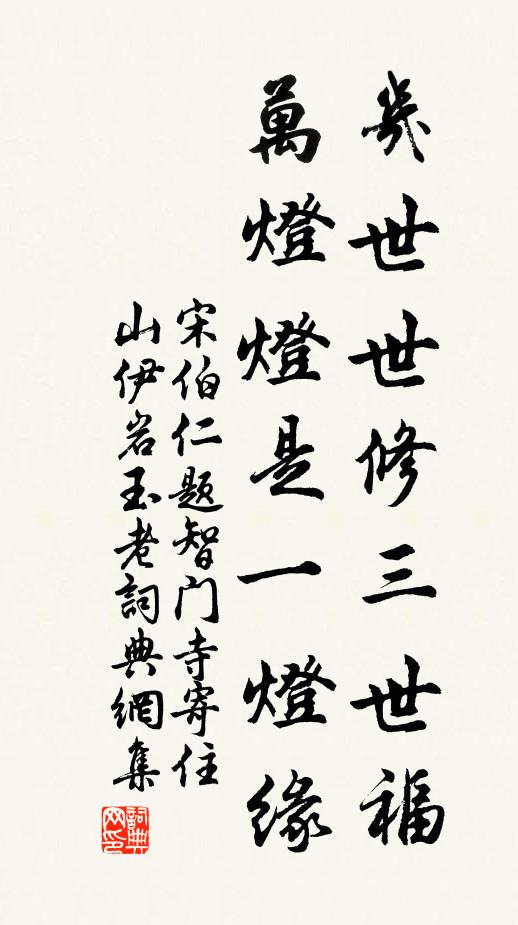 幾世世修三世福
萬燈燈是一燈緣
宋伯仁题智门寺寄住
山伊岩玉老詞典網集
詞典网印